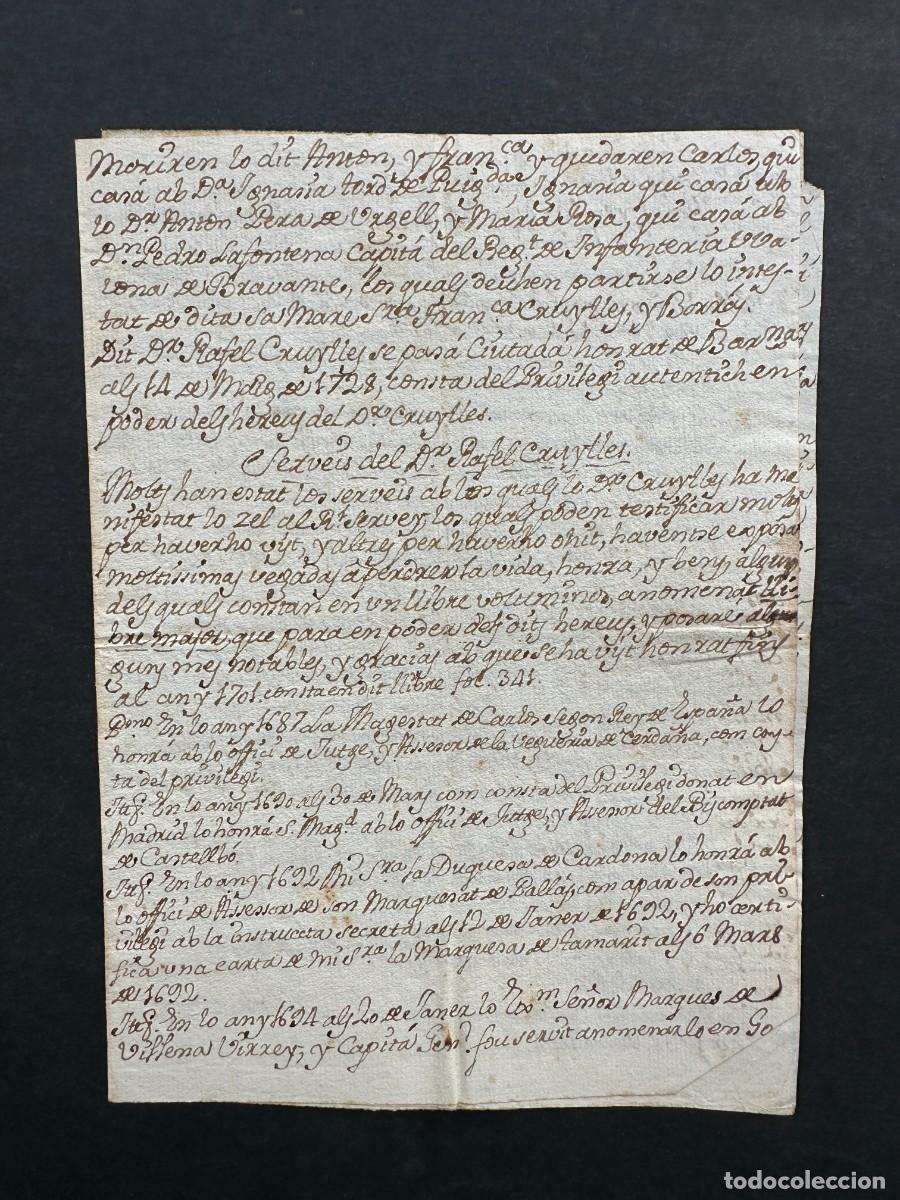 Moriren lo dit Anton, y Fran.ca y quedaren Carlos, qui
casá ab D.a Ignasia tord de Puig d.ae, Ignasia qui casá ab
lo D.r Anton Pera de Urgell, y Maria Rosa, qui casá ab
D.n Pedro Lafontena Capitá del Reg.t de Infanteria Uva-
lona de Bravante, los quals deuhen partirse lo intes-
tat de dita sa Mare S.ra Fran.ca Cruylles, y Borrós.
Dit D.r Rafel Cruylles se pasá Ciutadá honrat de Bar.na
als 14 de Maig de 1728, consta del Privilegi autentich en
poder dels hereus del D.r Cruylles.
Serveis del D.r Rafel Cruylles.
Molts han estat los serveis ab los quals lo D.r Cruylles ha ma
nifestat lo zel al R.l Servey, los quals poden testificar molts
per haverho vist, y altres per haverho ohit, haventse exposat
moltissimas vegadas a perdrer la vida, honra, y bens, alguns
dels quals constan en un llibre voluminos, anomenat lli-
bre major, que para en poder dels dits hereus, y posaré al
guns mes notables, y gracias ab que se ha vist honrat fins
al any 1701. consta en dit llibre fol. 341.
P.mo En lo any 1687 La Magestat de Carlos Segon Rey de España lo
honrá ab lo offici de Jutge, y Assesor de la Vegueria de Cerdaña, com cos-
ta del privilegi.
Itt. En lo any 1690 als 30 de Mars com consta del Privilegi donat en
Madrid lo honrá S. Mag.d ab lo offici de Jutge, y Assesor del Biscomptat
de Castellbó.
Itt. En lo any 1692 Mi S.ra la Duquesa de Cardona lo honrá ab
lo offici de Assessor de son Marquesat de Pallás, com apar de son pri-
vilegi ab la instruccta secreta als 12 de Janer de 1692, y ho certi-
fica una carta de mi S.ra la Marquesa de tamarit als 6 Mars
de 1692.
Itt. En lo any 1694 als 20 de Janer lo Ex.m Señor Marques de
Villena Virrey, y Capitá Gen.l fou servit anomenarlo en Go
todocoleccion